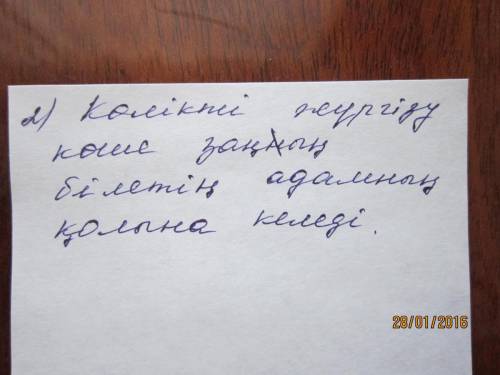 2) Көлікті жүргізу
көше заңның
білетін адамның
қолына келеді.
28/01/2016